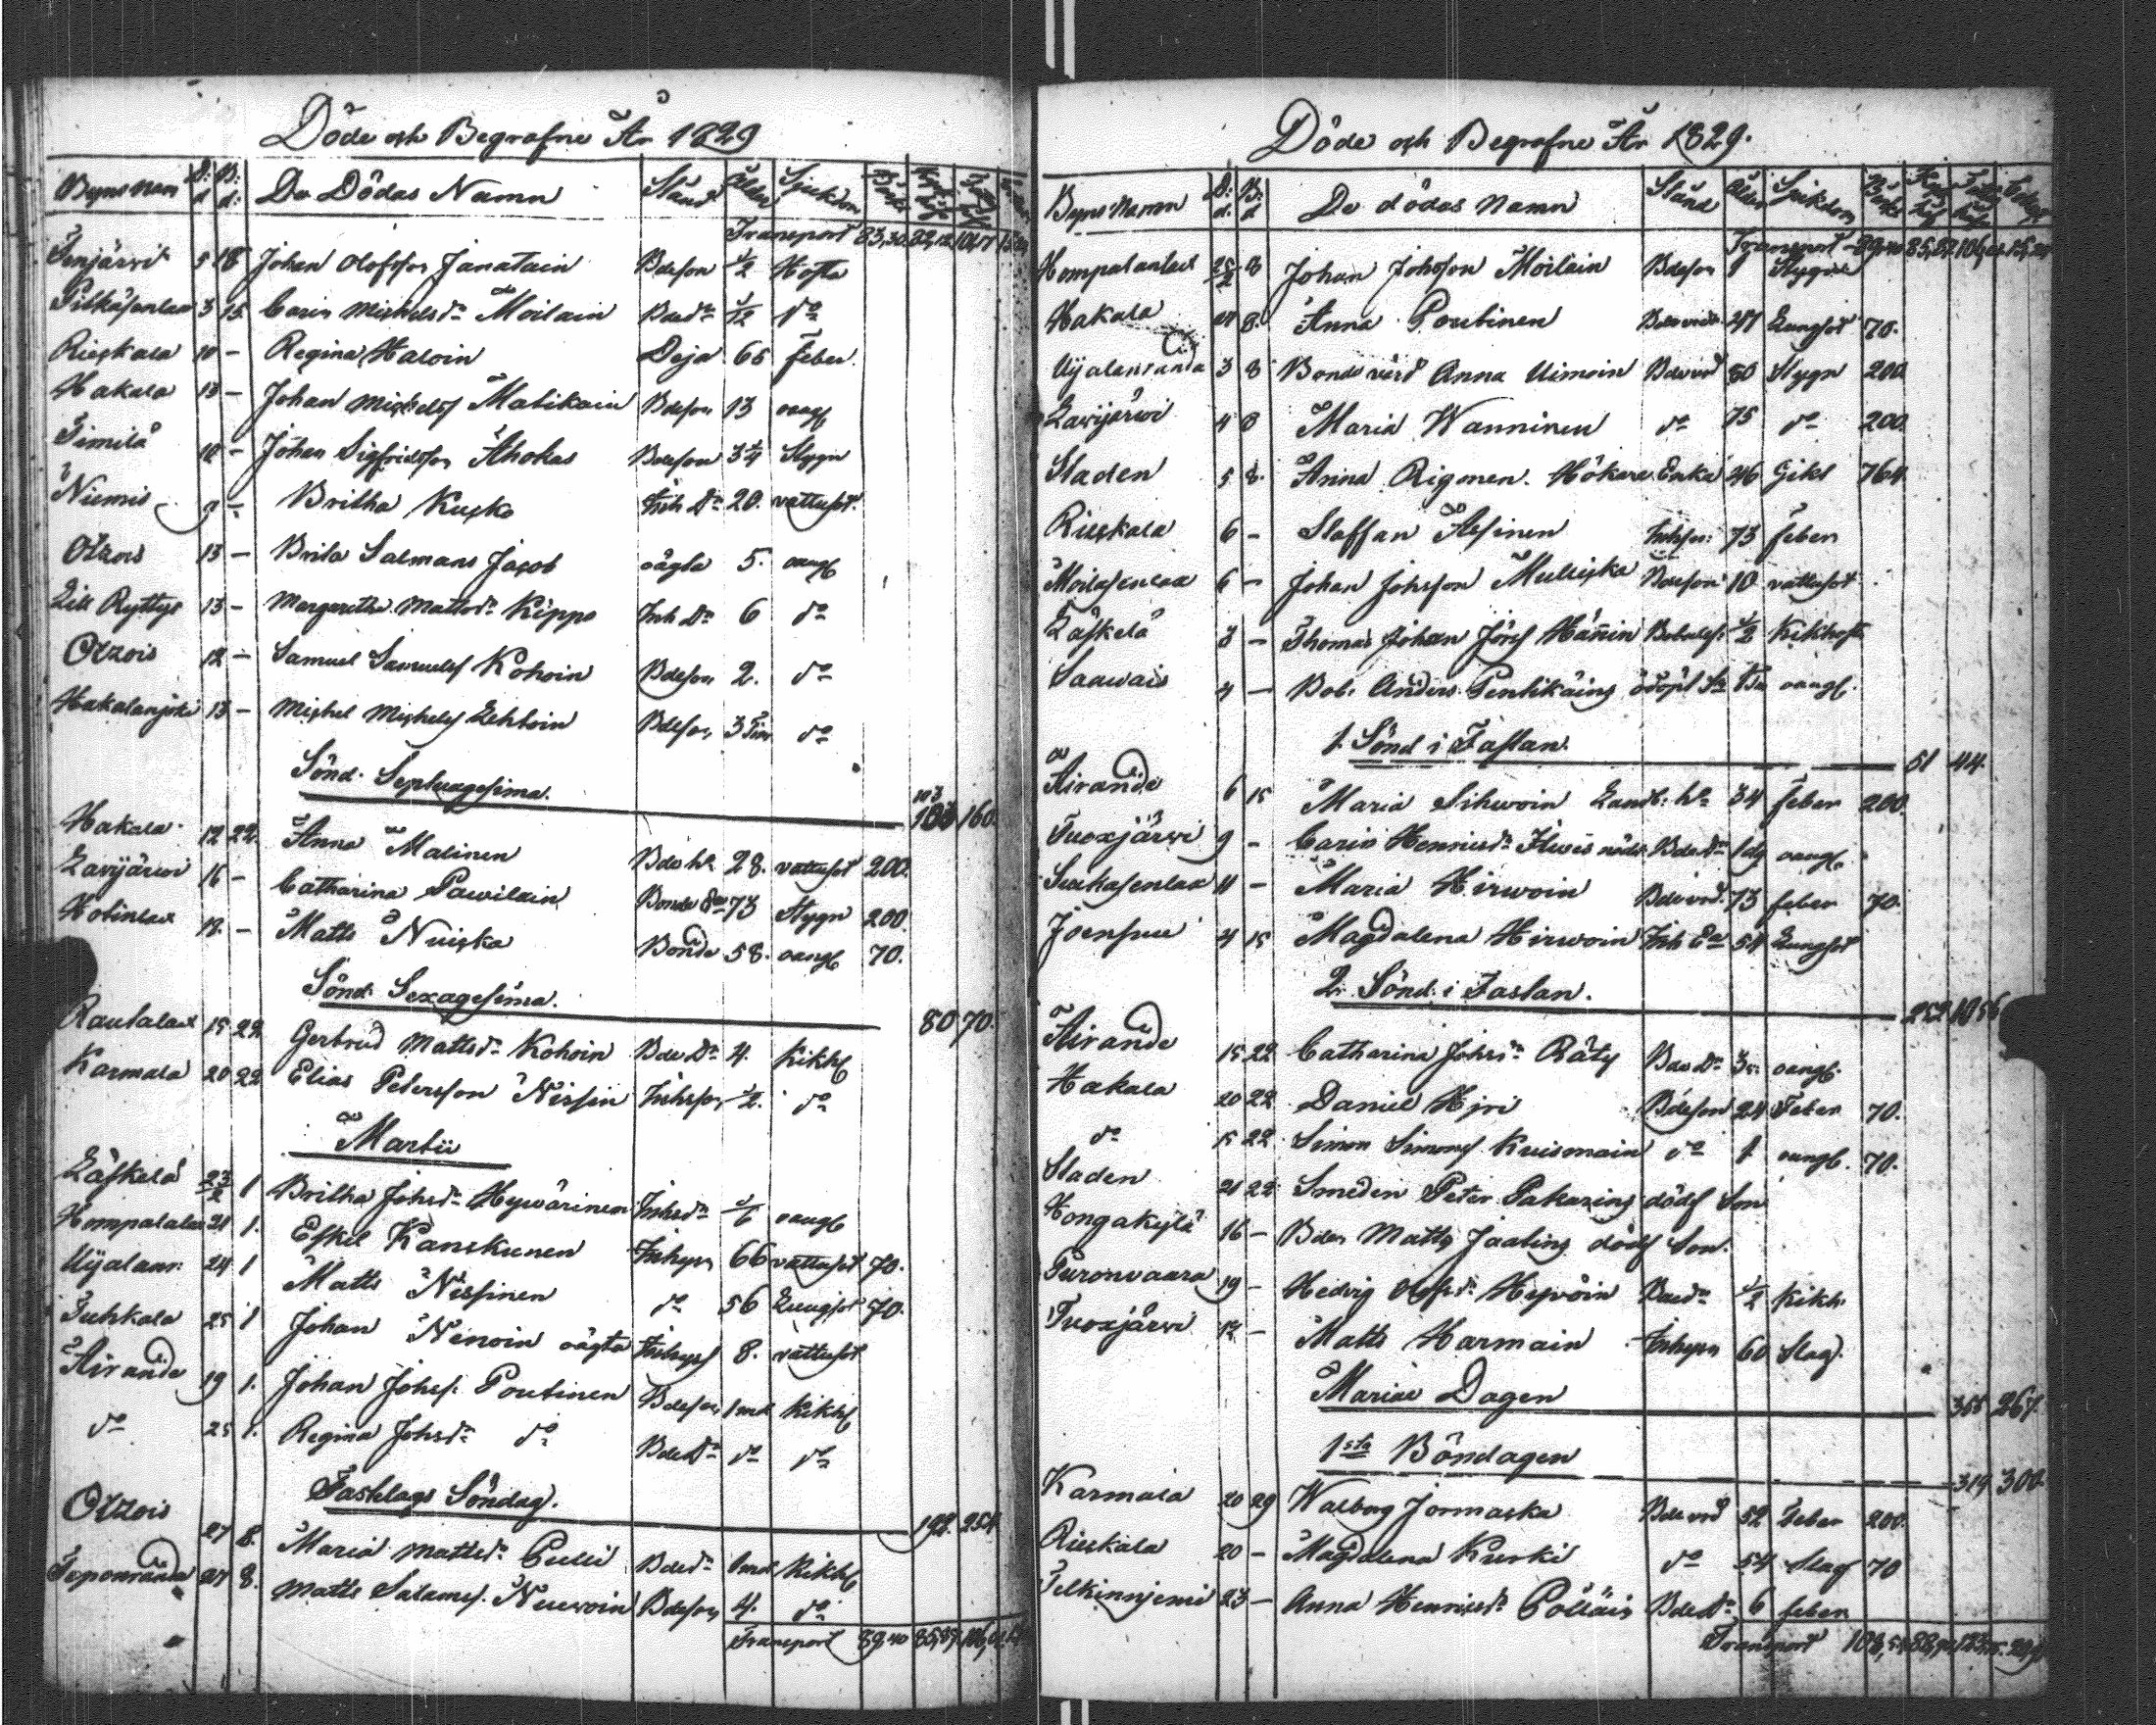 Döde och Begrafne År 1829
Byns Namn D: d B: d: De Dödas Namn Stånd Ålder Sjukdom
Transport
5 18 Johan Olofsson Janatain Bdeson 1/2 Hosta
3 15 Carin Michelsdr Moilain Bdedr 1/12 do
Rieskala 10 – Regina Haloin Deja 65 feber
Hakala 13 – Johan Michelss Matikain Bdeson 13 oangf
Timilä 10 – Johan Sigfridsson Ahokas Bdeson 3 1/4 Stygn
Niemis 9 – Britha Kuska Inh Dr 20. vattusot.
Otrois 13 – Brita Salmans Jacob oägta 5. oangf
Lill Ryttys 13 – Margaretha Mattsdr Kippo Inh Dr 6 do
Otrois 12 – Samuel Samuels Kohoin Bdeson 2. do
Hakalanjoki 13 – Michel Michels Lehtoin Bdeson 3 do
Sönd. Septuagesima.
160
Hakala 12 22. Anna Malinen Bde h. 28. vattusot 200.
Lavijärvi 16 – Catharina Pawilain Bonde 73 Stygn 200
Hotinlax 18. – Matts Nuiska Bonde 58. oangf 70.
Sönd. Sexagesima.
80 70.
Rautalax 15 22 Gertrud Mattsdr Kohoin Bde Dr 4. Kikhf
Karmala 20 22 Elias Petersson Nissin Inhson 1/2. do
Martii
Läskelä 23/2 1 Britha Johsdr Hyvärinen Inhsdr 1/6 oangf
21 1. Eskil Kanskunen Inhysn 66 vattusot 70.
Ujalanr: 24 1 Matts Nissinen do 56 Lungsot 70.
Tuhkala 25 1 Johan Ninoin oägta Inhyss 8. vattusot
Airande 19 1. Johan Johss: Poutinen Bdeson 1 md Kikhf
do 25 1. Regina Johsdr do BdeDr do do
Fastlags Söndag.
192. 254.
Otrois 27 8. Maria Mattsdr Pulli Bdedr 1md Kikhf
27 8. Matts Salams. Nuuvoin Bdeson 4. do
Transport
Döde och Begrafne År 1829.
Byns Namn D: d. B: d De dödas Namn Stånd Ålder Sjukdom
Transport
25/2 8 Johan Johsson Moilain Bdeson 1 Stygn
Hakala 27 8. Anna Poutinen 47 Lungsot 70.
Ujalanranda 3 8 Bonde värd Anna Uimoin 80 Stygn 200
Lavijärvi 4 8 Maria Wanninen do 75 do 200.
Staden 5 8. Anna Rigonen. Hökare Enka 46 Gikt 764.
Rieskala 6 – Staffan Ilesinen Inhson: 73 feber
6 – Johan Johsson Mulliska Bdeson 10 vattusot
Läskelä 3 – Thomas Johan Jöns Hännin 1/2 Kikhosta
Saawais 4 – Bob. Anders Pentikäins odöpt Sn oangf.
1. Sönd i Fastan.
51 44.
Airande 6 15 Maria Sihwoin Landb: h. 34 feber 200.
Tuoxjärvi 9 – Carin Henricsdr Ilwes nöd. Bdedr 1 dg oangf.
11 – Maria Hirwoin Bde vrd. 73 feber 70.
Joensuu 4 15 Magdalena Hirwoin Inh 54 Lungsot
2. Sönd. i Fastan.
Airande 15 22 Catharina Johsdr Räty Bde Dr oangf.
Hakala 20 22 Daniel Hjri Bdeson 24 Feber 70.
do 15 22. Simon Simons Kuismain do 1 oangf. 70.
Staden 21 22. Smeden Peter Pakarins dödf Son
Hongakylä 16 – Bden Matts Jaatins dödf Son.
Puronvaara 19 – Hedvig Olofsdr Hyvöin Bdedr 1/2 Kikh.
Tuoxjärvi – Matts Harmain Inhysn 60 Slag.
Mariae Dagen
267.
1sta Böndagen
319 300.
Karmala 20 29 Walborg Jormaska Bde vrd 52 Feber 200.
Rieskala 20 – Magdalena Kurki do 54 Slag 70
Telkinnjemi 23 – Anna Henricsdr Pölläin BdeDr 6 feber
Transport